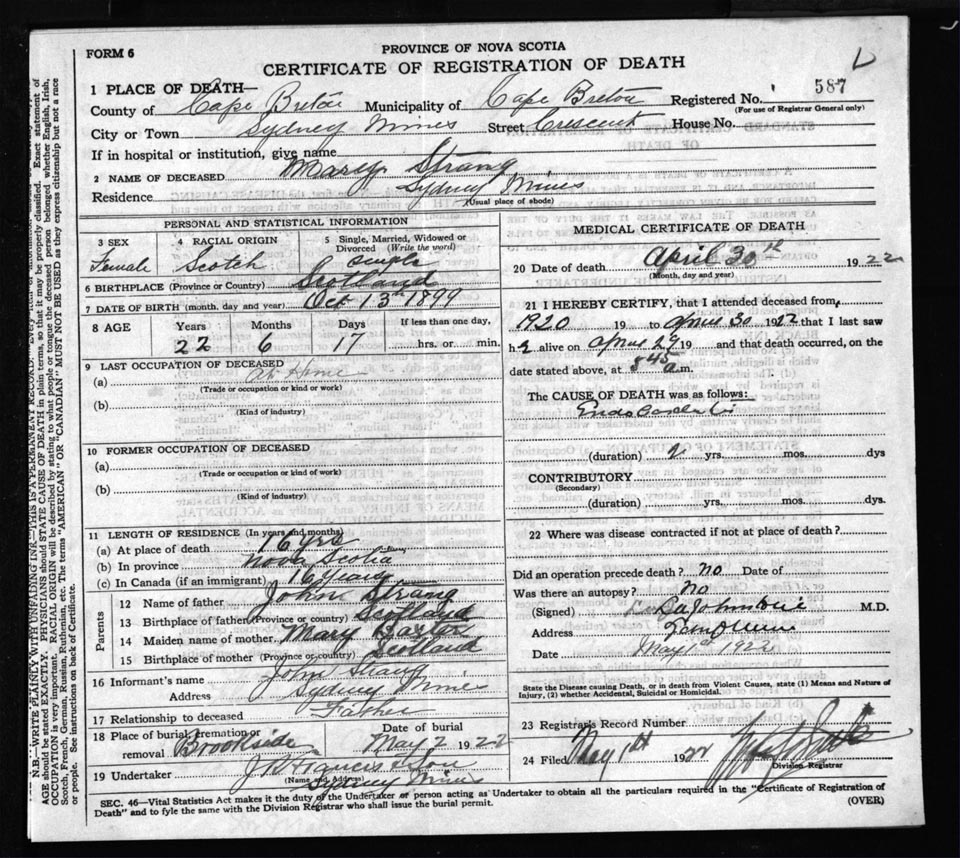 FORM 6
PROVINCE OF NOVA SCOTIA
CERTIFICATE OF REGISTRATION OF DEATH
1 PLACE OF DEATH—
587
County of Cape Breton Municipality of Cape Breton Registered No.
(For use of Registrar General only)
City or Town Sydney Mines Street Crescent House No.
If in hospital or institution, give name
2 NAME OF DECEASED Mary Strang
Residence Sydney Mines
(Usual place of abode)
PERSONAL AND STATISTICAL INFORMATION
3 SEX 4 RACIAL ORIGIN 5 Single, Married, Widowed or Divorced (Write the word)
Female Scotch Single
6 BIRTHPLACE (Province or Country) Scotland
7 DATE OF BIRTH (month, day and year) Oct 13th 1899
8 AGE Years Months Days If less than one day,
22 6 17 hrs. or min.
9 LAST OCCUPATION OF DECEASED
(a) At Home
(Trade or occupation or kind or work)
(b)
(Kind of industry)
10 FORMER OCCUPATION OF DECEASED
(a)
(Trade or occupation or kind of work)
(b)
(Kind of industry)
11 LENGTH OF RESIDENCE (In years and months)
(a) At place of death 16 yrs
(b) In province Nova Scotia
(c) In Canada (if an immigrant) 16 years
Parents
12 Name of father John Strang
13 Birthplace of father (Province or country) Scotland
14 Maiden name of mother Mary
15 Birthplace of mother (Province or country) Scotland
16 Informant's name John Strang
Address Sydney Mines
17 Relationship to deceased Father
18 Place of burial, cremation or removal Brookside Date of burial May 2 1922
19 Undertaker J. Francis & Son
(Name and Address)
Sydney Mines
MEDICAL CERTIFICATE OF DEATH
20 Date of death April 30th 1922
(Month, day and year)
21 I HEREBY CERTIFY, that I attended deceased from
1920 19 to April 30 1922 that I last saw
h alive on April 29 19 and that death occurred, on the
date stated above, at 8 45 a.m.
The CAUSE OF DEATH was as follows:
Endocarditis
(duration) 2 yrs. mos. dys
CONTRIBUTORY
(Secondary)
(duration) yrs. mos. dys.
22 Where was disease contracted if not at place of death?
Did an operation precede death? no Date of
Was there an autopsy? no
(Signed) M.D.
Address
Date May 1st 1922
State the Disease causing Death, or in death from Violent Causes, state (1) Means and Nature of
Injury, (2) whether Accidental, Suicidal or Homicidal.
23 Registrar's Record Number
24 Filed May 1st 1922
Division Registrar
SEC. 46—Vital Statistics Act makes it the duty of the Undertaker or person acting as Undertaker to obtain all the particulars required in the "Certificate of Registration of
Death" and to fyle the same with the Division Registrar who shall issue the burial permit.
(OVER)